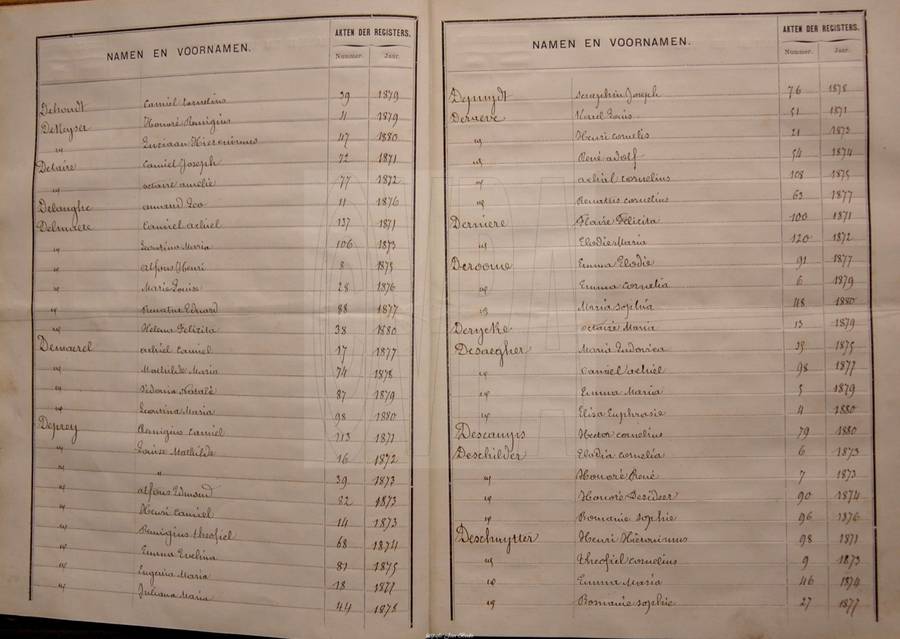 NAMEN EN VOORNAMEN. AKTEN DER REGISTERS.
Nummer. Jaar.
Dehondt Camiel Cornelius 39 1879
DeKeyser Honoré Remigius 4 1879
" Luciaan Hieronimus 47 1880
Delaire Camiel Joseph 72 1871
" octavie amelie 77 1872
Delanghe armand Leo 11 1876
Delmaere Camiel achiel 137 1871
" Leontina Maria 106 1873
" alfons Henri 8 1875
" Marie Louise 28 1876
" Renatus Eduard 88 1877
" Helena Felicita 38 1880
Demaerel achiel Camiel 17 1877
" Mathilde Maria 74 1878
" Sidonia Natalé 87 1879
" Leontina Maria 98 1880
Deprey Remigius Camiel 113 1871
" Louise Mathilde 16 1872
" " 39 1873
" alfons Edmond 82 1873
" Henri Camiel 14 1873
" Remigius theofiel 68 1874
" Emma Evelina 81 1875
" Eugenia Maria 18 1877
" Juliana Maria 44 1878
NAMEN EN VOORNAMEN. AKTEN DER REGISTERS.
Nummer. Jaar.
Depuydt Seraphin Joseph 76 1878
Dereeve Karel Louis 51 1871
" Henri Cornelis 21 1873
" René adolf 54 1874
" achiel Cornelius 108 1875
" Renatus Cornelius 63 1877
Derniere Flavie Felicita 100 1871
" Elodie Maria 120 1872
Deroome Emma Elodie 91 1877
" Emma Cornelia 6 1879
" Maria Sophia 48 1880
Derycke octavie Maria 13 1879
Desaegher Maria Ludovica 39 1875
" Camiel achiel 98 1877
" Emma Maria 5 1879
" Elisa Euphrasie 4 1880
Descamps Hector Cornelius 79 1880
Deschilder Elodia Cornelia 6 1873
" Honoré René 7 1873
" Honoré Desideer 90 1874
" Romanie Sophie 96 1876
Deschuytter Henri Hieronimus 98 1871
" theofiel Cornelius 9 1873
" Emma Maria 46 1874
" Romanie Sophie 27 1877